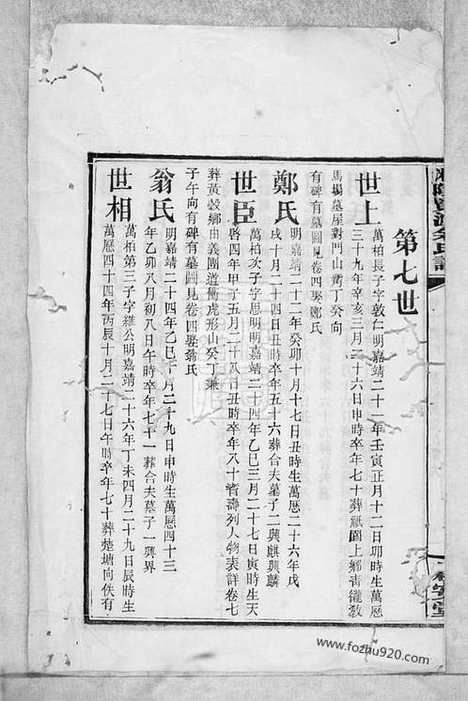 第七世
世上
萬柏長子字敦仁明嘉靖二十一年壬寅正月十二日卯時生萬歷
三十九年辛亥三月二十六日申時卒年七十葬祇園上鄉青龍敎
馬場墓屋對門山丁癸向
有碑有墓圖見卷四娶鄭氏
鄭氏
明嘉靖二十二年癸卯十月十七日丑時生萬歷二十六年戊
戌十月二十四日丑時卒年五十六葬合夫墓子二興麒興麟
世臣
萬柏次子字思明明嘉靖二十四年乙巳三月二十七日寅時生天
啓四年甲子五月二十八日丑時卒年八十耆壽列人物表詳卷七
葬黃穀鄉由義團道衝虎形山癸丁兼
子午向有碑有墓圖見卷四娶翁氏
翁氏
明嘉靖二十四年乙巳十月二十九日申時生萬歷四十三
年乙卯八月初八日午時卒年七十一葬合夫墓子一興界
世相
萬柏第三子字羅公明嘉靖二十六年丁未四月二十九日辰時生
萬歷四十四年丙辰十月二十七日午時卒年七十葬楚塘向佚有
www.fozhu920.com